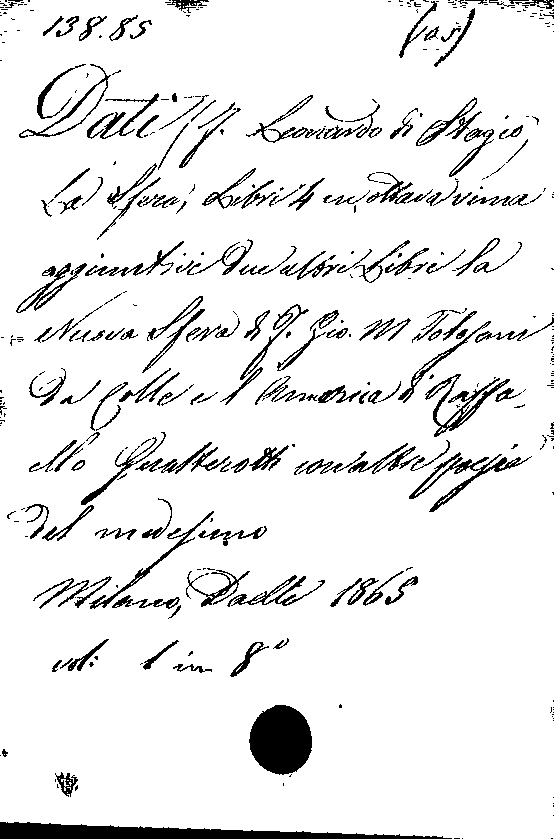 138.85 (105)
Dati (F. Leonardo di Stagio)
La Sfera; Libri 4 in ottava rima
aggiuntivi due altri Libri la
Nuova Sfera di F. Gio. M Tolosani
da Colle e l'America di Raffa-
ello Gualterotti con altre poesie
del medesimo
Milano, Daelli 1865
vol: 1 in 8°